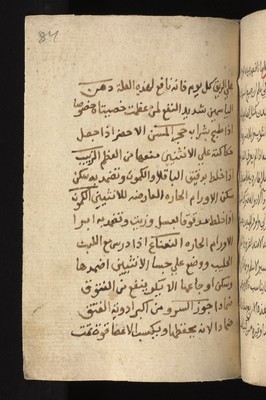 84
على الريق كل يوم فانه نافع لهذه العلة دهن
الياسمين شديد النفع لمن عظمت خصيتاه خصوصا
اذا طبخ بشراب حجر المسن الاخضر اذا جعل
حكاكته على الانثيين منعها من العظم الزبيب
اذا خلط بدقيق الباقلا والكمون وتضمد به سكن
سكن الاورام الحارة العارضة للانثيين الكمون
اذا خلط بعسل وزيت وتضمد به ابرا
الاورام الحارة النعناع اذا درس مع
الحليب ووضع على جسا الانثيين اضمرها
وسكن اوجاعها ينفع من الفتوق
ضمادا جوز السرو من اكبر ادوية الفتق
ضمادا لانه يجففها ويكسب الاعضا قوة